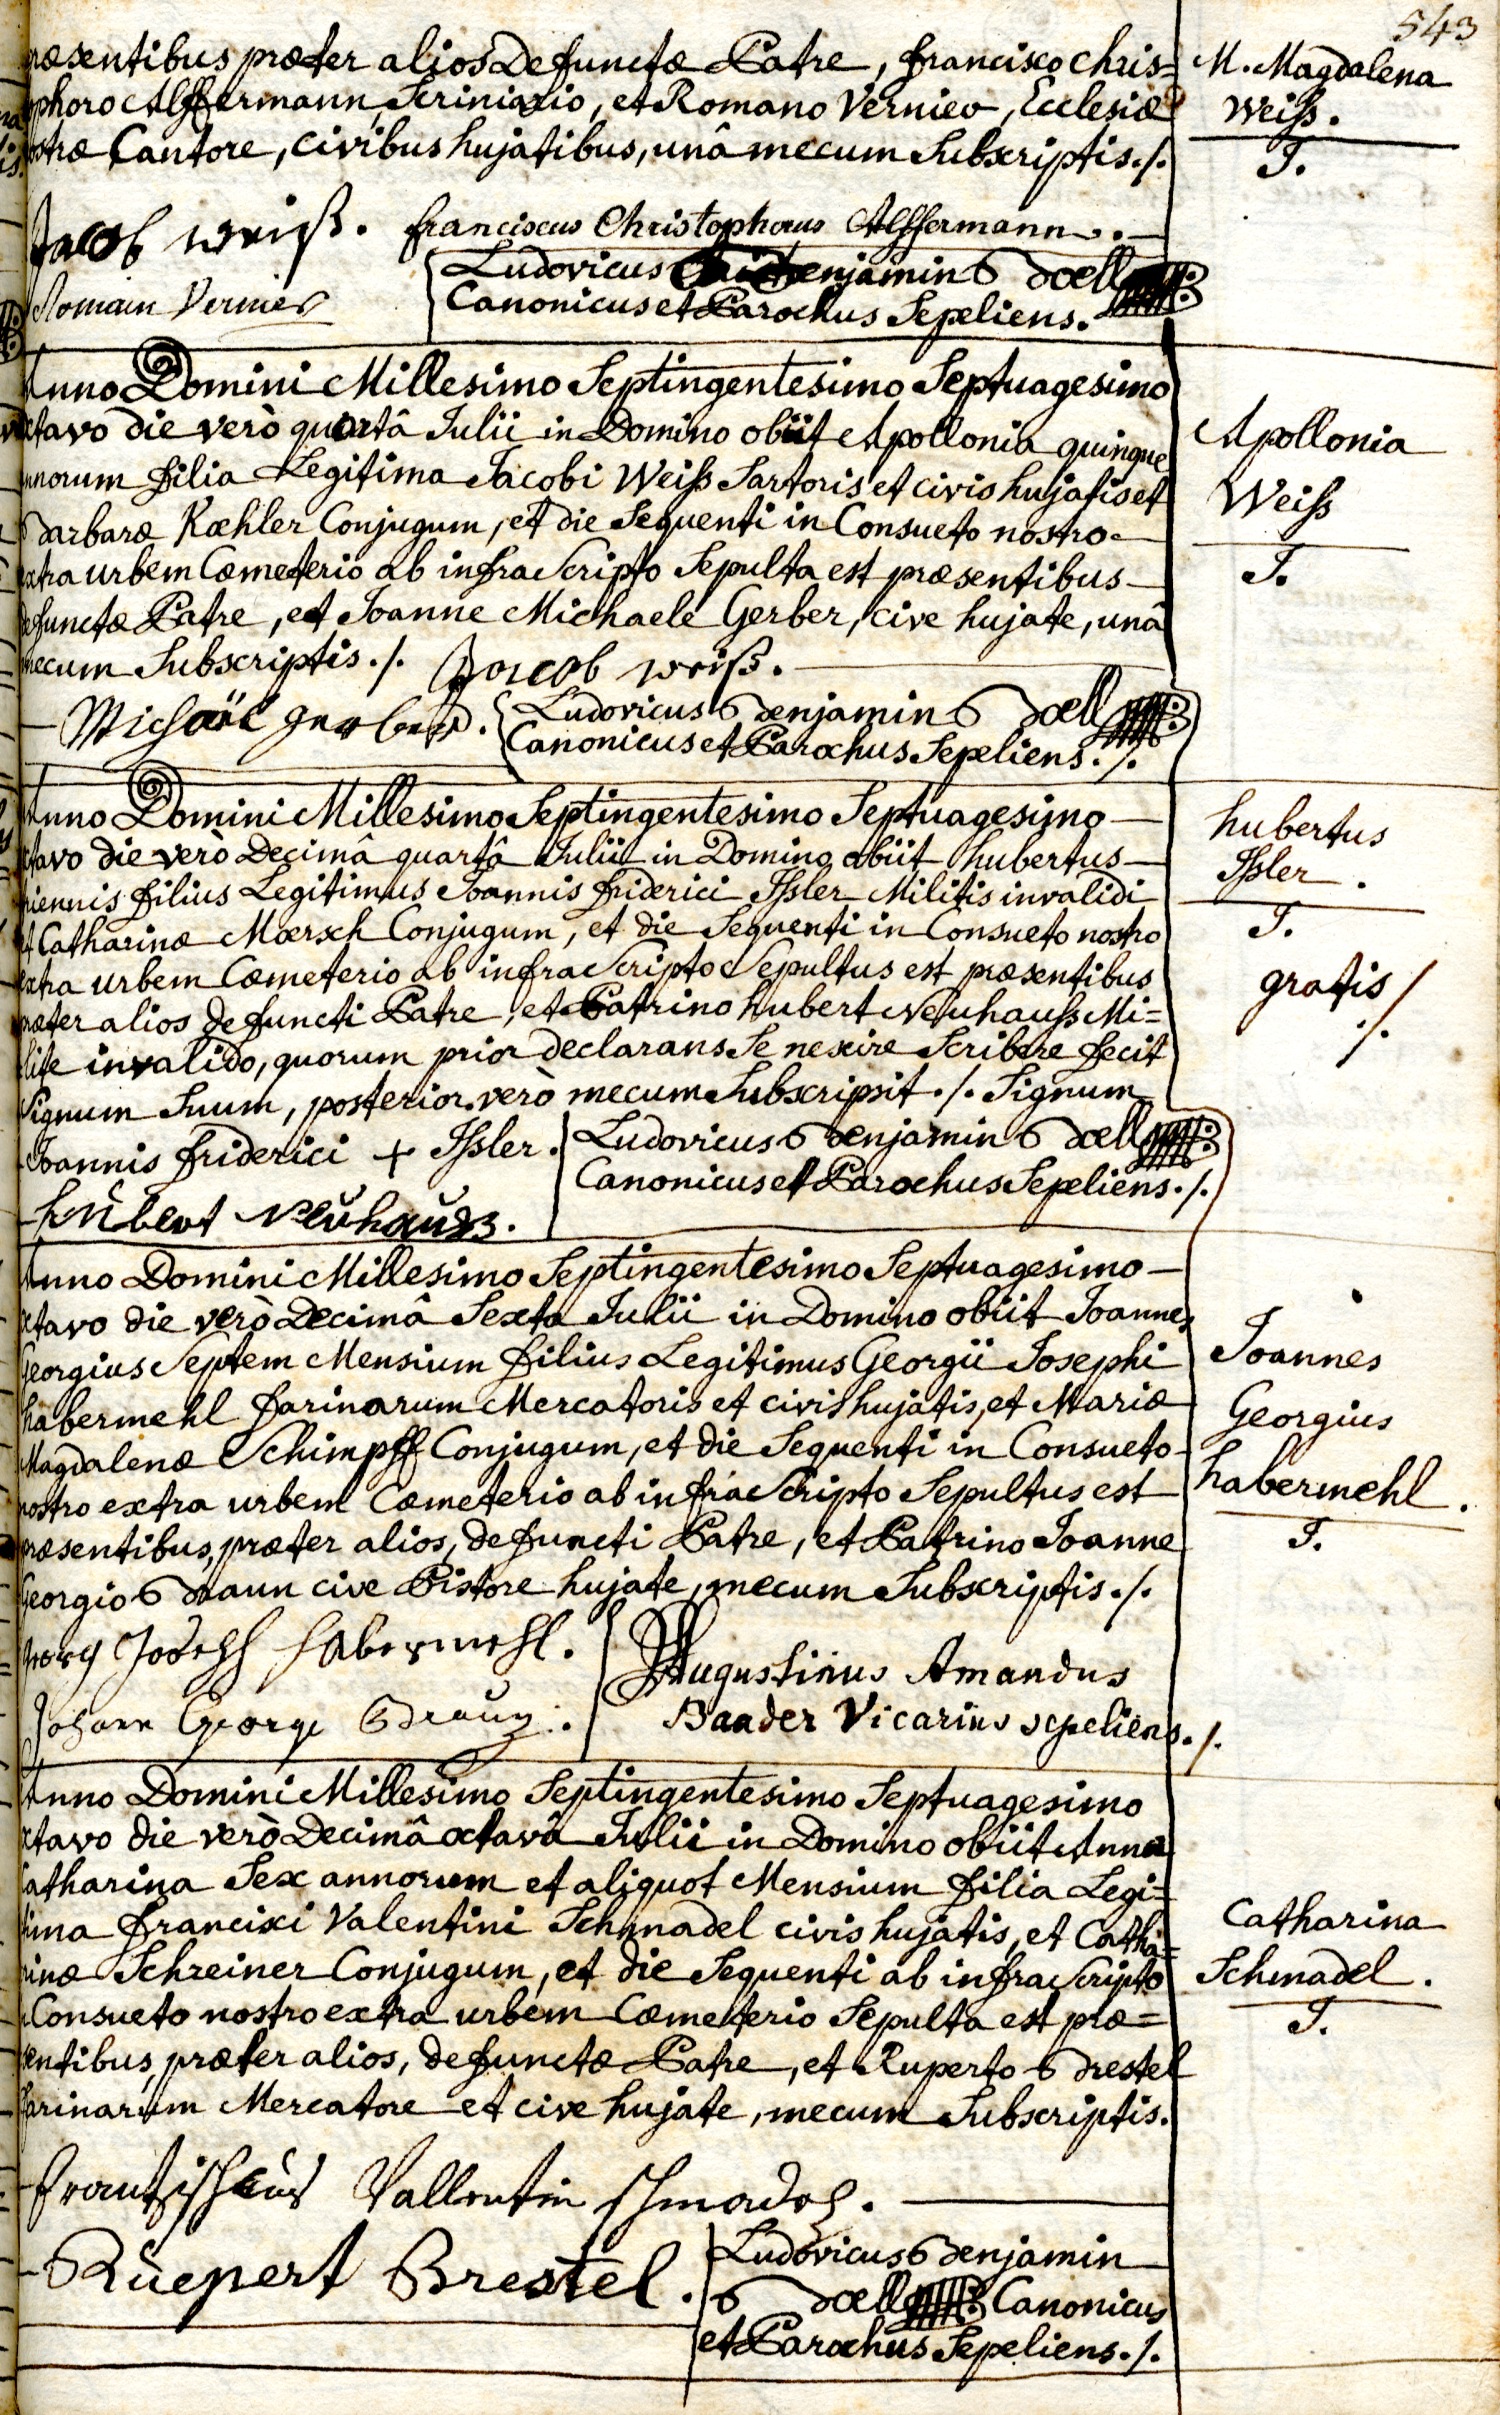 543
præsentibus præter alios Defunctæ Patre, francisco Chris=
ophoro Alffermann, Scriniario, et Romano Vernier, Ecclesiæ
ostræ Cantore, civibus hujatibus, unâ mecum Subscriptis ./.
M. Magdalena
Weiss.
T.
Jacob weiß. franciscus Christophorus Alffermann.
Romain Vernier
Ludovicus Benjamin Boell
Canonicus et Parochus Sepeliens.
Anno Domini Millesimo Septingentesimo Septuagesimo
octavo die verò quartâ Julii in Domino obiit Apollonia quinque
annorum filia Legitima Jacobi Weiss Sartoris et civis hujatis et
Barbaræ Kæhler Conjugum, et die Sequenti in Consueto nostro
extra urbem Cæmeterio ab infraScripto Sepulta est præsentibus
defunctæ Patre, et Joanne Michaele Gerber, cive hujate, unâ
mecum Subscriptis ./. Jacob weiß.
Apollonia
Weiss
T.
Michaël gerber.
Ludovicus Benjamin Boell
Canonicus et Parochus Sepeliens ./.
Anno Domini Millesimo Septingentesimo Septuagesimo
octavo die verò Decimâ quartâ Julii in Domino obiit hubertus
riennis filius Legitimus Joannis friderici Issler Militis invalidi
et Catharinæ Mærsch Conjugum, et die Sequenti in Consueto nostro
extra urbem Cæmeterio ab infraScripto Sepultus est præsentibus
præter alios defuncti Patre, et Patrino hubert Neuhauss Mi=
lite invalido, quorum prior declarans Se nescire Scribere fecit
Signum Suum, posterior verò mecum Subscripsit ./. Signum
Joannis friderici + Issler.
hubertus
Issler.
T.
gratis /
./.
Ludovicus Benjamin Boell
Canonicus et Parochus Sepeliens ./.
hübert Neuhauß.
Anno Domini Millesimo Septingentesimo Septuagesimo
octavo die verò Decimâ Sexta Julii in Domino obiit Joannes
Georgius Septem Mensium filius Legitimus Georgii Josephi
habermehl farinarum Mercatoris et civis hujatis, et Mariæ
Magdalenæ Schimpff Conjugum, et die Sequenti in Consueto
nostro extra urbem Cæmeterio ab infraScripto Sepultus est
præsentibus, præter alios, defuncti Patre, et Patrino Joanne
Georgio Braun cive Pistore hujate, mecum Subscriptis ./.
Joannes
Georgius
habermehl.
T.
Georg Joseph habermehl.
Johann George Braun.
Augustinus Amandus
Baader Vicarius sepeliens ./.
Anno Domini Millesimo Septingentesimo Septuagesimo
octavo die verò Decimâ octavâ Julii in Domino obiit Anna
Catharina Sex annorum et aliquot Mensium filia Legi=
tima francisci Valentini Schmadel civis hujatis, et Catha=
rinæ Schreiner Conjugum, et die Sequenti ab infraScripto
Consueto nostro extra urbem Cæmeterio Sepulta est præ=
sentibus, præter alios, defunctæ Patre, et Ruperto Brestel
farinarum Mercatore et cive hujate, mecum Subscriptis.
Catharina
Schmadel.
T.
frantzishcus Vallentin schmadel.
Rüepert Brestel.
Ludovicus Benjamin
Boell Canonicus
et Parochus Sepeliens ./.